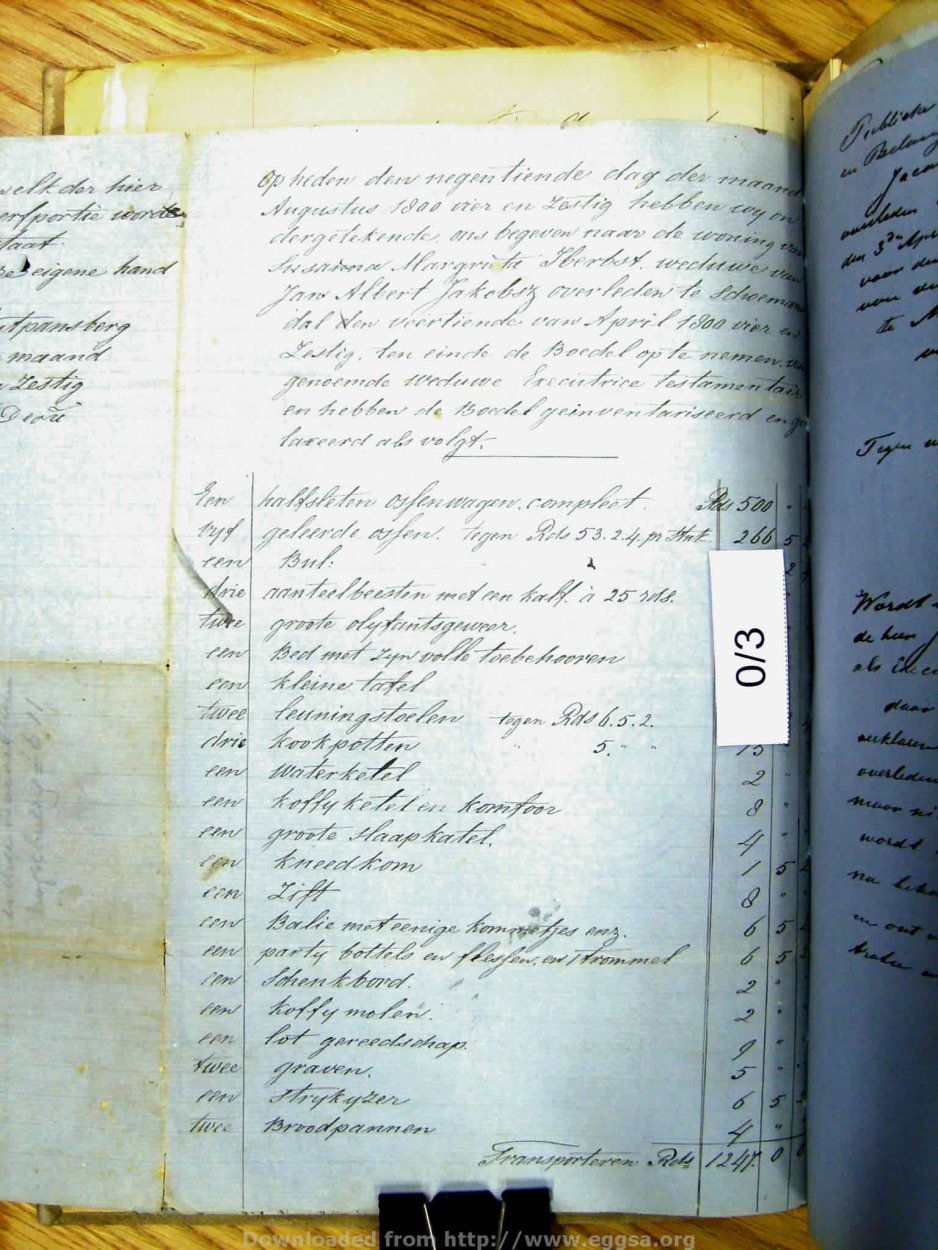 welk der hier
erfportie worde
staat
eigene hand
utpansberg
maand
Zestig
Op heden den negentiende dag der maand
Augustus 1800 vier en Zestig hebben wy on
dergetekende, ons begeven naar de woning van
Susanna Margrieta Herbst, weduwe van
Jan Albert Jakobsz overleden te Schoemans
dal den veertiende van April 1800 vier en
Zestig, ten einde de Boedel op te nemen, van
genoemde weduwe Executrice testamentair
en hebben de Boedel geinventariseerd en ge
taxeerd als volgt.
Een halfsleten ossenwagen, compleet. Rds 500 "
vyf geleerde ossen. tegen Rds 53. 2. 4. pr Stuk 266 5
een Bul:
drie aanteelbeesten met een kalf. à 25 rds.
twee groote olyfantsgeweer.
een Bed met zyn volle toebehooren
een kleine tafel
twee leuningstoelen tegen Rds 6. 5. 2.
drie kookpotten " 5. " " 15
een waterketel 2 "
een koffy ketel en komfoor 8 "
een groote slaapkatel. 4 "
een kneedkom 1 5
een Zift 8 "
een Balie met eenige kommetjes enz. 6 5
een party bottels en flessen, en 1 trommel 6 5
een Schenkbord. 2 "
een koffy molen. 2 "
een lot gereedschap. 9 "
twee graven. 5 "
een strykyzer 6 5
twee Broodpannen 4 "
Transporteren Rds 1247. 0 0
0/3
Publieke
en
overleden
den 3de April
voor den
te
Tegen
Wordt
de heer
als
daar
verklaren
overleden
maar
wordt
na
Downloaded from http://www.eggsa.org